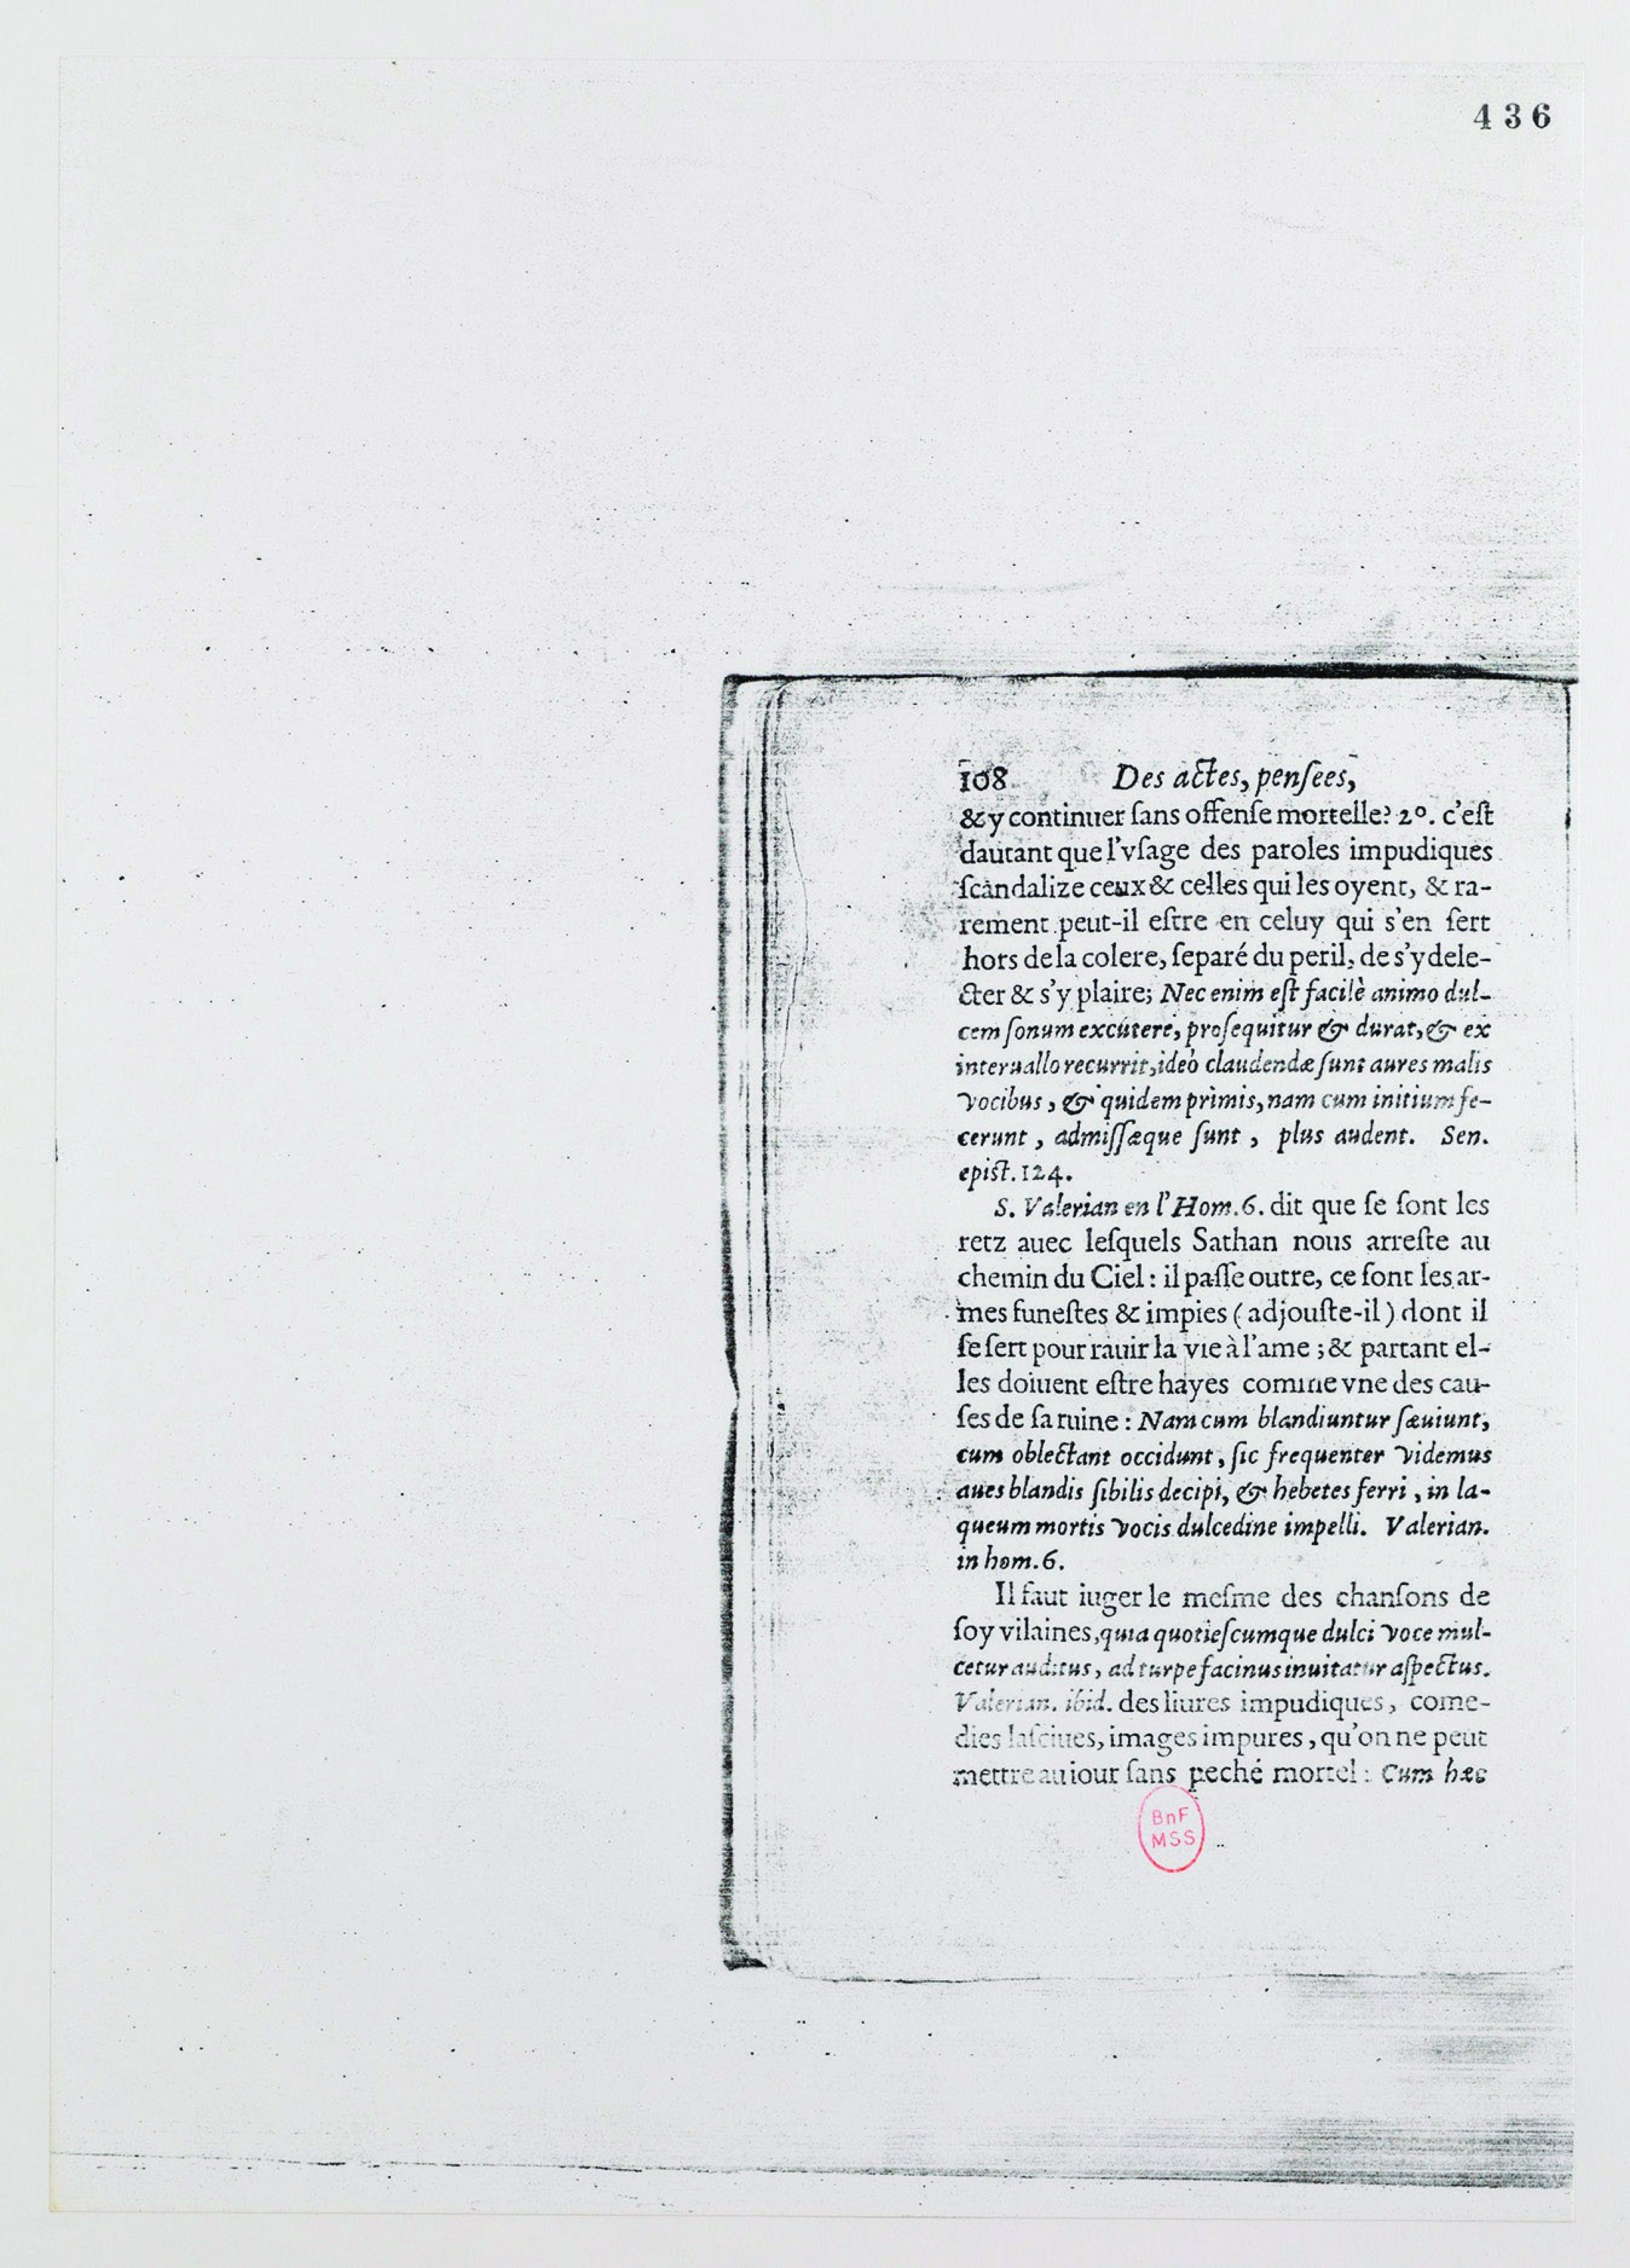 436
108 Des actes, pensees,
& y continuer ſans offenſe mortelle? 2º. c'eſt
dautant que l'vſage des paroles impudiques
ſcandalize ceux & celles qui les oyent, & ra-
rement peut-il eſtre en celuy qui s'en ſert
hors de la colere, ſeparé du peril, de s'y dele-
cter & s'y plaire; Nec enim eſt facilè animo dul-
cem ſonum excutere, proſequitur & durat, & ex
interuallo recurrit, ideò claudendæ ſunt aures malis
vocibus, & quidem primis, nam cum initium fe-
cerunt, admiſſæque ſunt, plus audent. Sen.
epiſt. 124.
S. Valerian en l'Hom. 6. dit que ſe ſont les
retz auec leſquels Sathan nous arreſte au
chemin du Ciel: il paſſe outre, ce ſont les ar-
mes funeſtes & impies (adjouſte-il) dont il
ſe ſert pour rauir la vie à l'ame; & partant el-
les doiuent eſtre hayes comme vne des cau-
ſes de ſa ruine: Nam cum blandiuntur ſæuiunt,
cum oblectant occidunt, ſic frequenter videmus
aues blandis ſibilis decipi, & hebetes ferri, in la-
queum mortis vocis dulcedine impelli. Valerian.
in hom. 6.
Il faut iuger le meſme des chanſons de
ſoy vilaines, quia quotieſcumque dulci voce mul-
cetur auditus, ad turpe facinus inuitatur aſpectus.
Valerian. ibid. des liures impudiques, come-
dies laſciues, images impures, qu'on ne peut
mettre au iour ſans peché mortel: Cum hæc
BnF
MSS